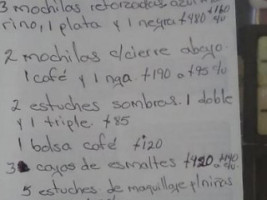 3 mochilas retorzadas, azul ma
rino, 1 plata y 1 negra +480 +160 c/u
2 mochilas c/cierre abajo.
1 café y 1 nga +190 a +95 %
2 estuches sombras. 1 doble
y 1 triple. +85
1 bolsa café +120
3 cajas de esmaltes +420 +140
5 estuches de maquillaje p/niñas